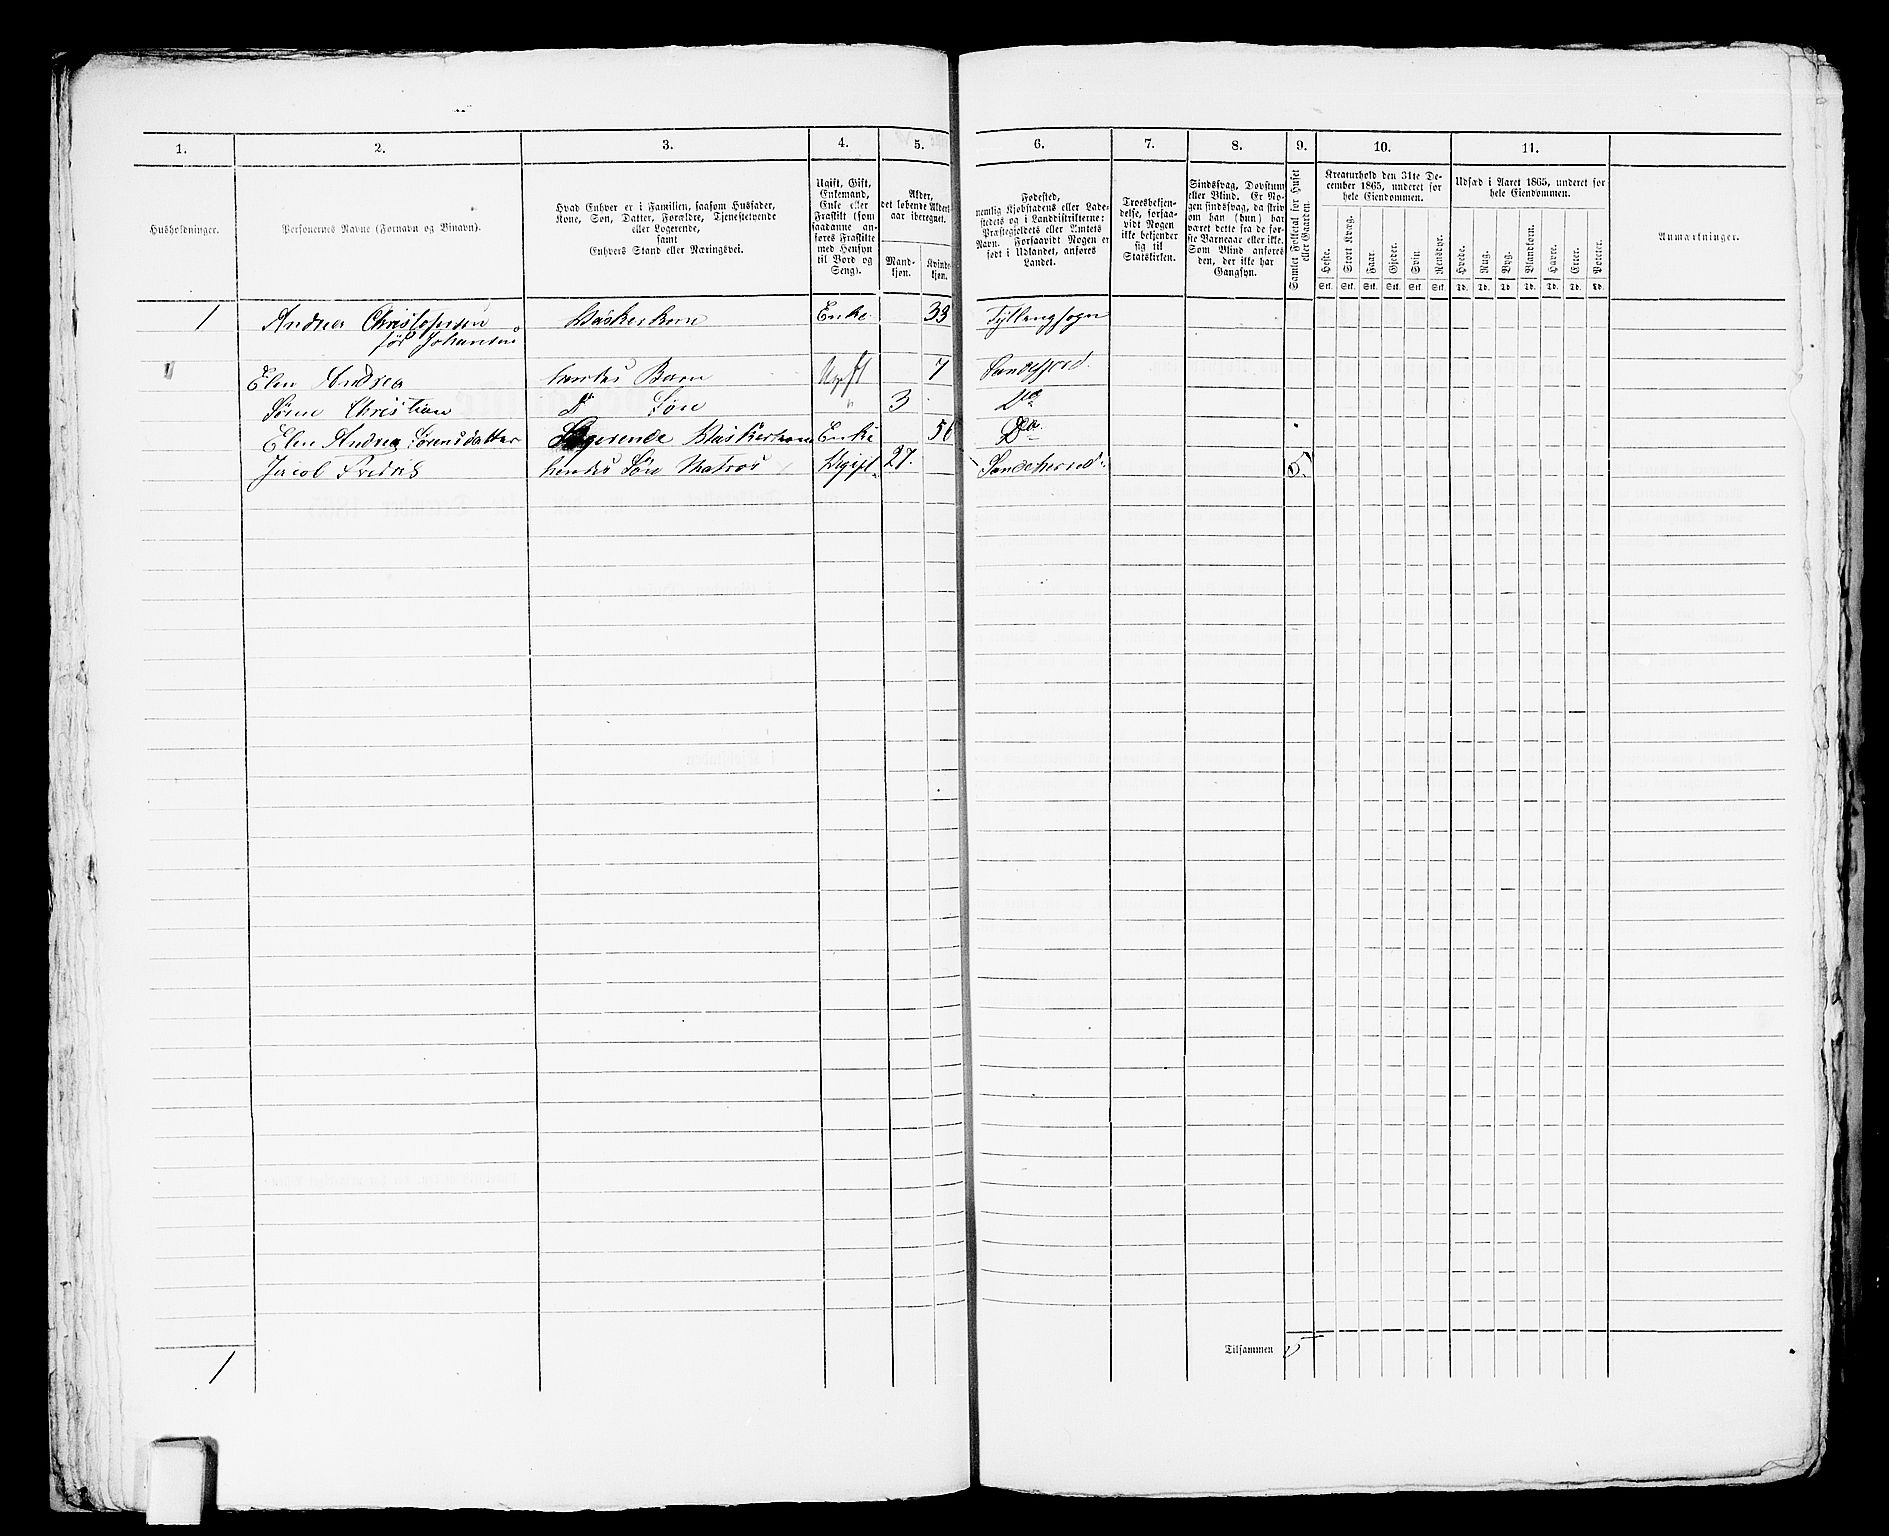 1. 2. 3. 4. 5. 6. 7. 8. 9. 10. 11.
Husholdninger.
Personernes Navne (Fornavn og Binavn).
Hvad Enhver er i Familien, saasom Husfader,
Kone, Søn, Datter, Forældre, Tjenestetyende
eller Logerende,
samt
Enhvers Stand eller Næringsvei.
Ugift, Gift,
Enkemand,
Enke eller
Fraskilt (som
saadanne an-
føres Fraskilte
med Hensyn
til Bord og
Seng).
Alder,
det løbende Alders-
aar iberegnet.
Mand-
kjøn.
Kvinde-
kjøn.
Fødested,
nemlig Kjøbstadens eller Lade-
stedets og i Landdistrikterne:
Præstegjeldets eller Amtets
Navn. Forsaavidt Nogen er
født i Udlandet, anføres
Landet.
Troesbekjen-
delse, forsaa-
vidt Nogen
ikke bekjender
sig til
Statskirken.
Sindssvag, Døvstum
eller Blind. Er No-
gen sindssvag, da skriv
om han (hun) har
været dette fra de før-
ste Barneaar eller ikke.
Som Blind anføres
den, der ikke har
Gangsyn.
Samlet Folketal for Huset
eller Gaarden.
Kreaturhold den 31te De-
cember 1865, underet for
hele Eiendommen.
Heste. Stort Kvæg. Faar. Gjeder. Svin Rensdyr.
Stk. Stk. Stk. Stk. Stk. Stk.
Udsæd i Aaret 1865, underet for
hele Eiendommen.
Hvede. Rug. Byg. Blandkorn. Havre. Erter. Poteter.
Td. Td. Td. Td. Td. Td. Td.
Anmærkninger.
1 Andrea Christofersen Enke 33
før Johansen
Elen Andrea hendes Barn Ugift 7 Sandefjord
Christian Do Søn " 3 Do
Elen Andrea Sørensdatter Logerende Enke 56 Do
Jacob Fredrik hendes Søn Matros Ugift 27. Sandeherred 5.
1 Tilsammen 5